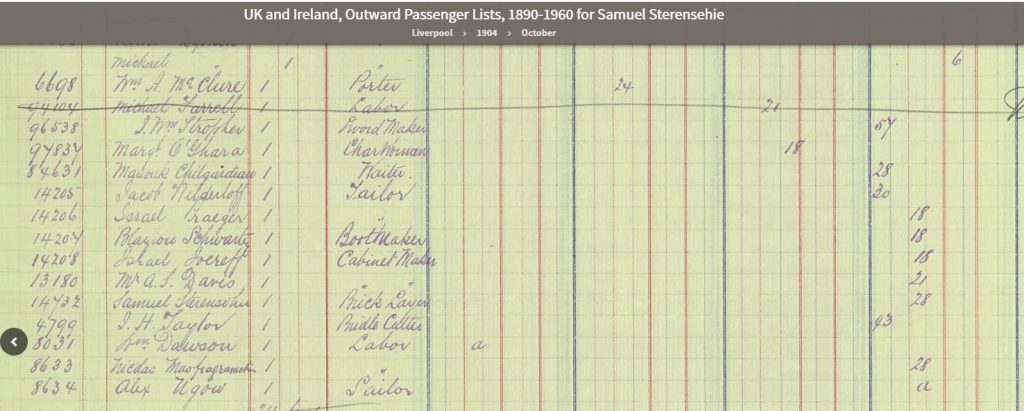 UK and Ireland, Outward Passenger Lists, 1890-1960 for Samuel Sterensehie
Liverpool › 1904 › October
Michael 1 6
6698 Wm A. McClure 1 Porter 24
94104 Michael Farrell Labor 21
96538 J. Wm Stropher 1 Sword Maker 57
97837 Margt. O'Ghara 1 Char Woman 18
84631 Chilgardian 1 Waiter 28
14205 Jacob Wilderloff 1 Tailor 30
14206 Israel Praeger 1 " 18
14207 Schwartz 1 Boot Maker 18
14208 Israel 1 Cabinet Maker 18
13180 Mr A. S. Davis 1 " 21
14732 Samuel Sterensohn 1 Brick Layer 28
4799 J. H. Taylor 1 Bridle Cutter 43
8031 Wm Dawson 1 Labor a
8633 1 " 28
8634 Alex Ugow 1 Sailor a